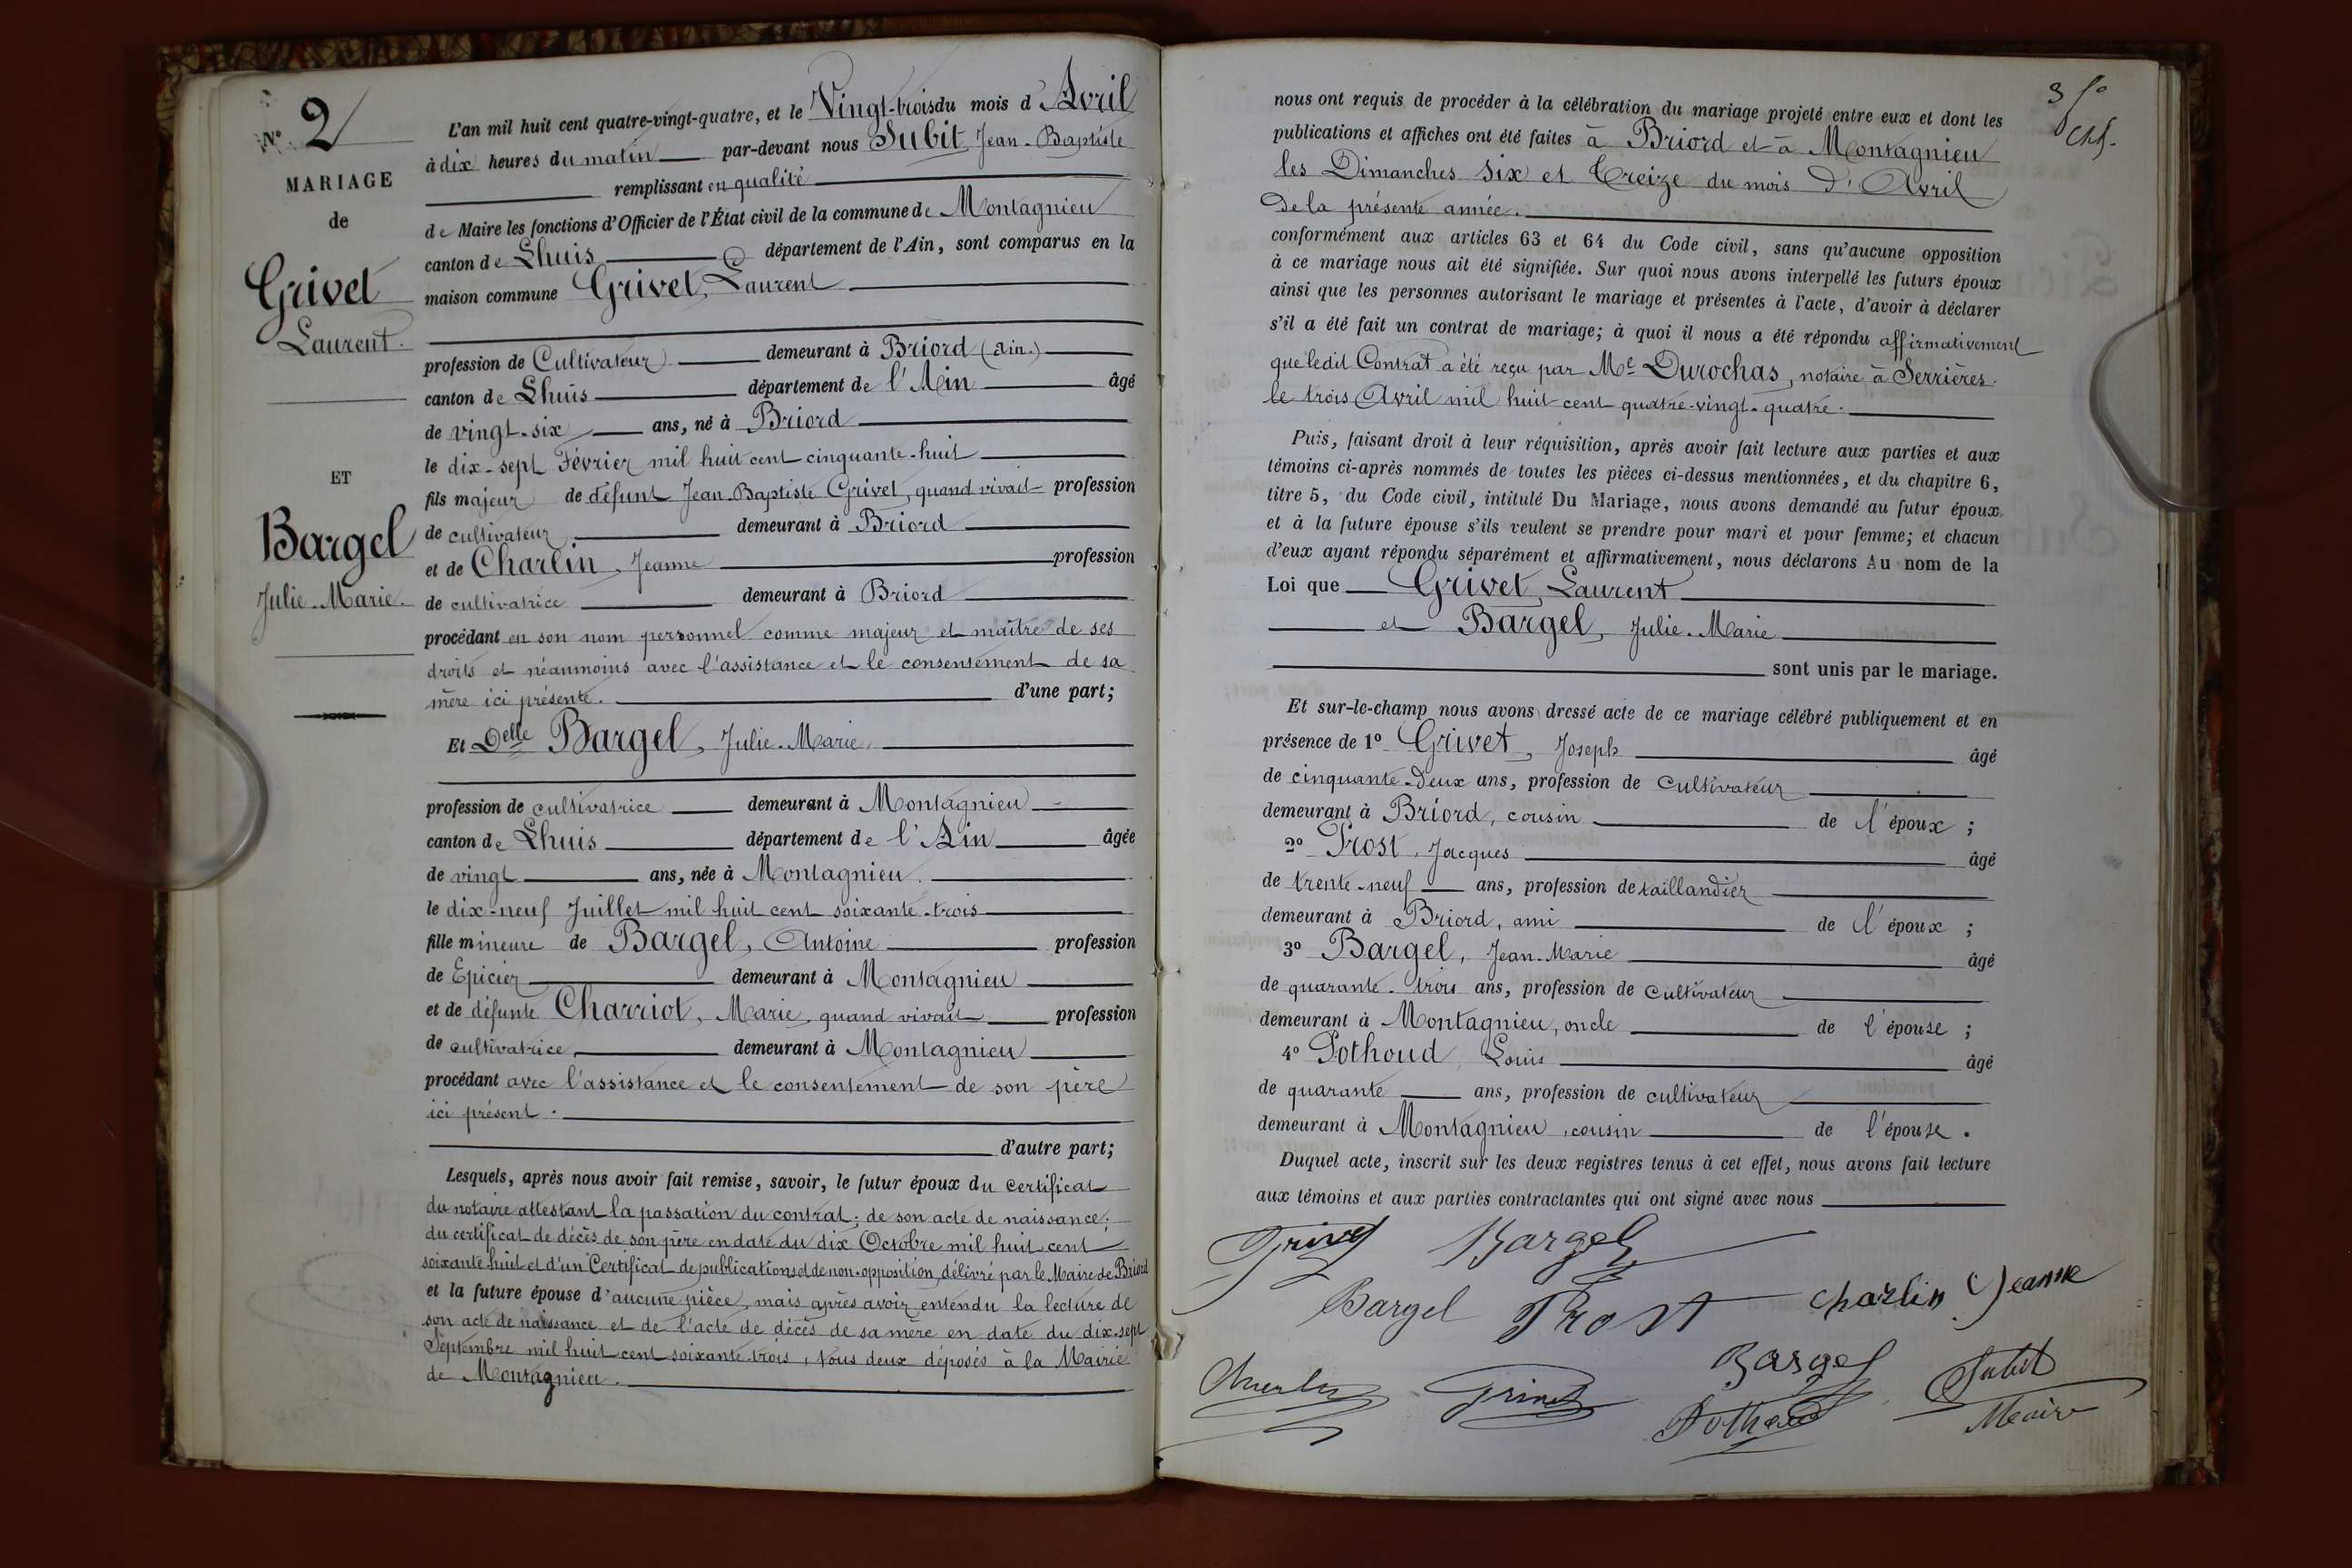 N° 2
MARIAGE
de
Grivet
Laurent.
ET
Bargel
Julie-Marie.
L'an mil huit cent quatre-vingt-quatre, et le Vingt-trois du mois d'Avril
à dix heures du matin par-devant nous Subit, Jean-Baptiste
remplissant en qualité
de Maire les fonctions d'Officier de l'État civil de la commune de Montagnieu
canton de Lhuis département de l'Ain, sont comparus en la
maison commune Grivet, Laurent
profession de Cultivateur demeurant à Briord (Ain.)
canton de Lhuis département de l'Ain âgé
de vingt-six ans, né à Briord
le dix-sept Février mil huit cent cinquante-huit
fils majeur de défunt Jean-Baptiste Grivet, quand vivait profession
de cultivateur demeurant à Briord
et de Charlin, Jeanne profession
de cultivatrice demeurant à Briord
procédant en son nom personnel comme majeur et maître de ses
droits et néanmoins avec l'assistance et le consentement de sa
mère ici présente. d'une part;
Et Delle Bargel, Julie-Marie,
profession de cultivatrice demeurant à Montagnieu
canton de Lhuis département de l'Ain âgée
de vingt ans, née à Montagnieu.
le dix-neuf Juillet mil huit cent soixante-trois
fille mineure de Bargel, Antoine profession
de Epicier demeurant à Montagnieu
et de défunte Charriot, Marie, quand vivait profession
de cultivatrice, demeurant à Montagnieu
procédant avec l'assistance et le consentement de son père
ici présent.
d'autre part;
Lesquels, après nous avoir fait remise, savoir, le futur époux du certificat
du notaire attestant la passation du contrat; de son acte de naissance;
du certificat de décès de son père en date du dix Octobre mil huit cent
soixante-huit et d'un Certificat de publications et de non-opposition, délivré par le Maire de Briord
et la future épouse d'aucune pièce, mais après avoir entendu la lecture de
son acte de naissance et de l'acte de décès de sa mère en date du dix-sept
Septembre mil huit cent soixante-trois, tous deux déposés à la Mairie
de Montagnieu.
3 fo
nous ont requis de procéder à la célébration du mariage projeté entre eux et dont les
publications et affiches ont été faites à Briord et à Montagnieu
les Dimanches Six et Treize du mois d'Avril
de la présente année.
conformément aux articles 63 et 64 du Code civil, sans qu'aucune opposition
à ce mariage nous ait été signifiée. Sur quoi nous avons interpellé les futurs époux
ainsi que les personnes autorisant le mariage et présentes à l'acte, d'avoir à déclarer
s'il a été fait un contrat de mariage; à quoi il nous a été répondu affirmativement
que ledit Contrat a été reçu par Me Durochas, notaire à Serrières.
le trois Avril mil huit cent quatre-vingt-quatre.
Puis, faisant droit à leur réquisition, après avoir fait lecture aux parties et aux
témoins ci-après nommés de toutes les pièces ci-dessus mentionnées, et du chapitre 6,
titre 5, du Code civil, intitulé Du Mariage, nous avons demandé au futur époux
et à la future épouse s'ils veulent se prendre pour mari et pour femme; et chacun
d'eux ayant répondu séparément et affirmativement, nous déclarons Au nom de la
Loi que Grivet, Laurent
et Bargel, Julie-Marie
sont unis par le mariage.
Et sur-le-champ nous avons dressé acte de ce mariage célébré publiquement et en
présence de 1° Grivet, Joseph âgé
de cinquante-deux ans, profession de Cultivateur
demeurant à Briord, cousin de l'époux;
2° Prost, Jacques âgé
de trente-neuf ans, profession de taillandier
demeurant à Briord, ami de l'époux;
3° Bargel, Jean-Marie âgé
de quarante-trois ans, profession de Cultivateur
demeurant à Montagnieu, oncle de l'épouse;
4° Pothoud, Louis âgé
de quarante ans, profession de cultivateur
demeurant à Montagnieu, cousin de l'épouse.
Duquel acte, inscrit sur les deux registres tenus à cet effet, nous avons fait lecture
aux témoins et aux parties contractantes qui ont signé avec nous
Grivet Bargel
Bargel Prost Charlin Jeanne
Grivet Bargel Subit
Pothoud Maire